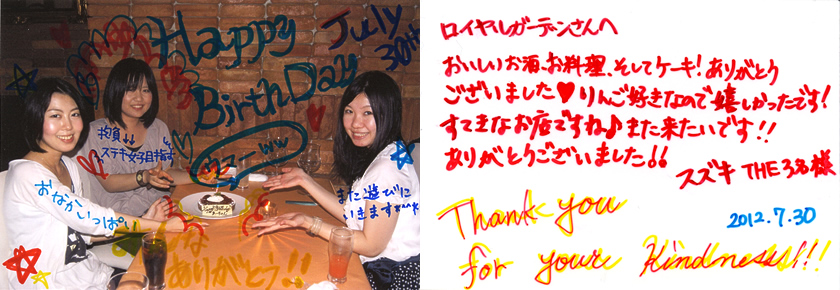 Happy
July
30th
BirthDay
均頂↓↓
ステキ女子目指す
ww
おなかいっぱい
また遊びに
いきます
ありがとう!!
ロイヤルガーデンさんへ
おいしいお酒、お料理、そしてケーキ!ありがとう
ございました♥りんご好きなので嬉しかったです!
すてきなお店ですね♪また来たいです!!
ありがとうございました!!
スズキ THE 3名様
Thank you
2012.7.30
for your Kindness!!!